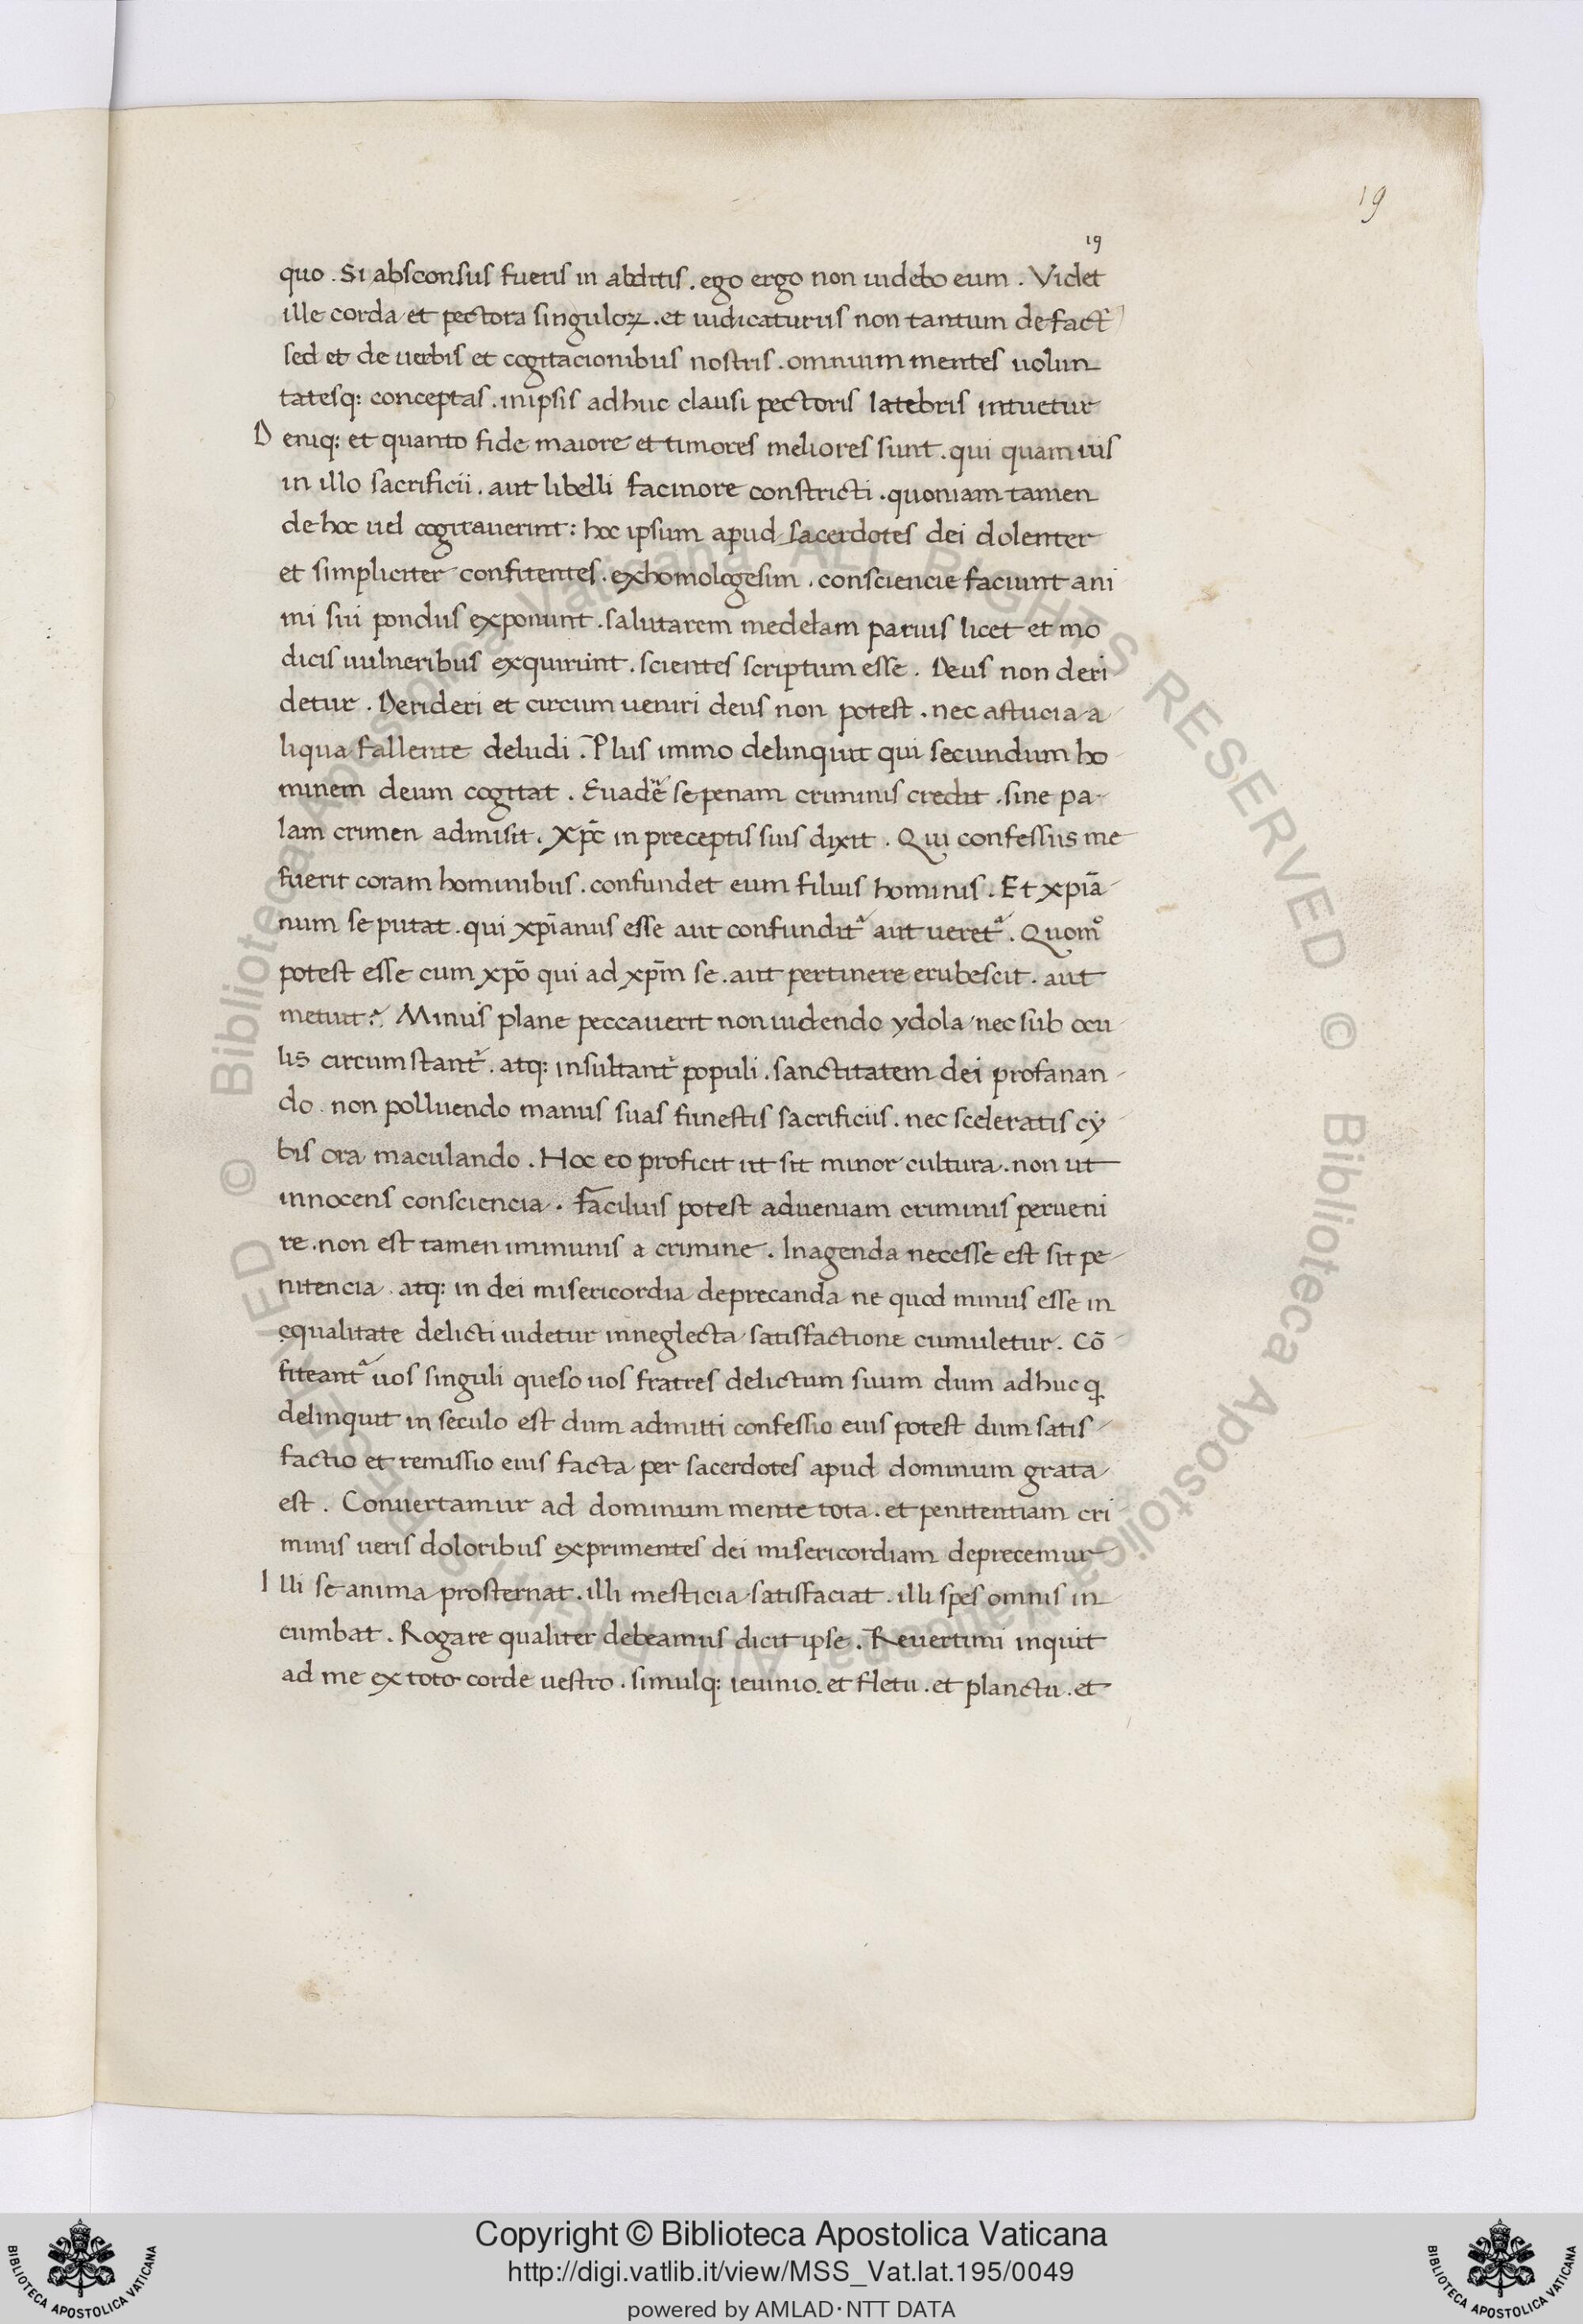 19
19
quo . Si absconsus fueris in abditis . ego ergo non uidebo eum . Videt
ille corda et pectora singuloꝝ . et iudicaturus non tantum de fact
sed et de uerbis et cogitacionibus nostris . omnium mentes uolun
tatesq: conceptas . inipsis adhuc clausi pectoris latebris intuetur
D eniq: et quanto fide maiore et timores meliores sunt . qui quamuis
in illo sacrificii . aut libelli facinore constricti . quoniam tamen
de hoc uel cogitauerint : hoc ipsum apud sacerdotes dei dolenter
et simpliciter confitentes . exhomologesim . consciencie faciunt ani
mi sui pondus exponunt . salutarem medelam paruis licet et mo
dicis uulneribus exquirunt . scientes scriptum esse . Deus non deri
detur . Derideri et circum ueniri deus non potest . nec astucia a
liqua fallente deludi . Plus immo delinquit qui secundum ho
minem deum cogitat . Euadē se penam criminis credit . sine pa
lam crimen admisit . Xp̄c in preceptis suis dixit . Qui confessus me
fuerit coram hominibus . confundet eum filius hominis . Et xpīa
num se putat . qui xpīanus esse aut confundit᷑ aut ueret᷑ . Quomͦ
potest esse cum xpō qui ad xpm̄ se . aut pertinere erubescit . aut
metuit ? Minus plane peccauerit non uidendo ydola nec sub ocu
lis circumstant᷑ . atq: insultant᷑ populi . sanctitatem dei profanan
do . non polluendo manus suas funestis sacrificiis . nec sceleratis cẏ
bis ora maculando . Hoc eo proficit ut sit minor cultura . non ut
innocens consciencia . Facilius potest adueniam criminis perueni
re . non est tamen immunis a crimine . Inagenda necesse est sit pe
nitencia . atq: in dei misericordia deprecanda ne quod minus esse in
ęqualitate delicti uidetur inneglecta satisfactione cumuletur . Cō
fiteant᷑ uos singuli queso uos fratres delictum suum dum adhuc q
delinquit in seculo est dum admitti confessio eius potest dum satis
factio et remissio eius facta per sacerdotes apud dominum grata
est . Conuertamur ad dominum mente tota . et penitentiam cri
minis ueris doloribus exprimentes dei misericordiam deprecemur
I lli se anima prosternat . illi mesticia satisfaciat . illi spes omnis in
cumbat . Rogare qualiter debeamus dicit ipse . Reuertimi inquit
ad me ex toto corde uestro . simulq: ieiunio . et fletu . et planctu . et
© Biblioteca Apostolica Vaticana ALL RIGHTS RESERVED © Biblioteca Apostolica Vaticana ALL RIGHTS RESERVED
BIBLIOTECA APOSTOLICA VATICANA
Copyright © Biblioteca Apostolica Vaticana
http://digi.vatlib.it/view/MSS_Vat.lat.195/0049
powered by AMLAD·NTT DATA
BIBLIOTECA APOSTOLICA VATICANA